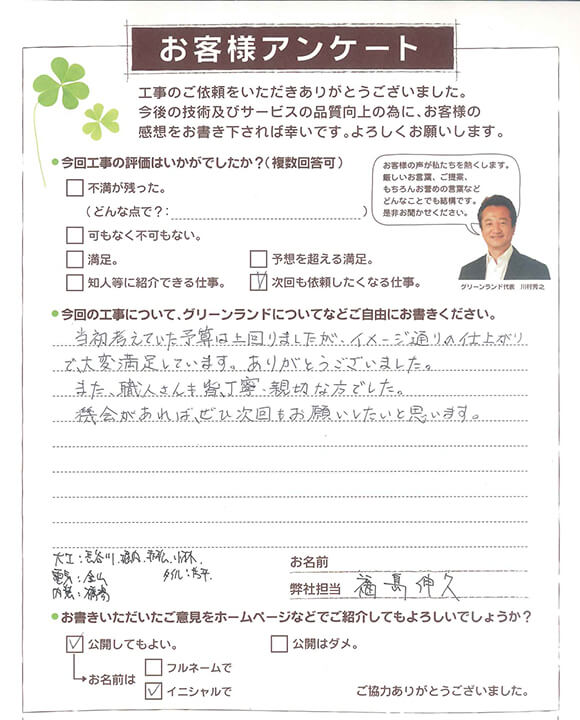 お客様アンケート
工事のご依頼をいただきありがとうございました。
今後の技術及びサービスの品質向上の為に、お客様の
感想をお書き下されば幸いです。よろしくお願いします。
今回工事の評価はいかがでしたか?(複数回答可)
不満が残った。
(どんな点で?: )
可もなく不可もない。
満足。
予想を超える満足。
知人等に紹介できる仕事。
次回も依頼したくなる仕事。
お客様の声が私たちを熱くします。
厳しいお言葉、ご提案、
もちろんお誉めの言葉など
どんなことでも結構です。
是非お聞かせください。
グリーンランド代表 川村秀之
今回の工事について、グリーンランドについてなどご自由にお書きください。
当初考えていた予算は上回りましたが、イメージ通りの仕上がり
で、大変満足しています。ありがとうございました。
また、職人さんも皆、丁寧、親切な方でした。
機会があれば、ぜひ次回もお願いしたいと思います。
大工:長谷川、
電気:金山
タイル:
内装:
お名前
弊社担当 福島伸久
お書きいただいたご意見をホームページなどでご紹介してもよろしいでしょうか?
公開してもよい。
公開はダメ。
お名前は
フルネームで
イニシャルで
ご協力ありがとうございました。